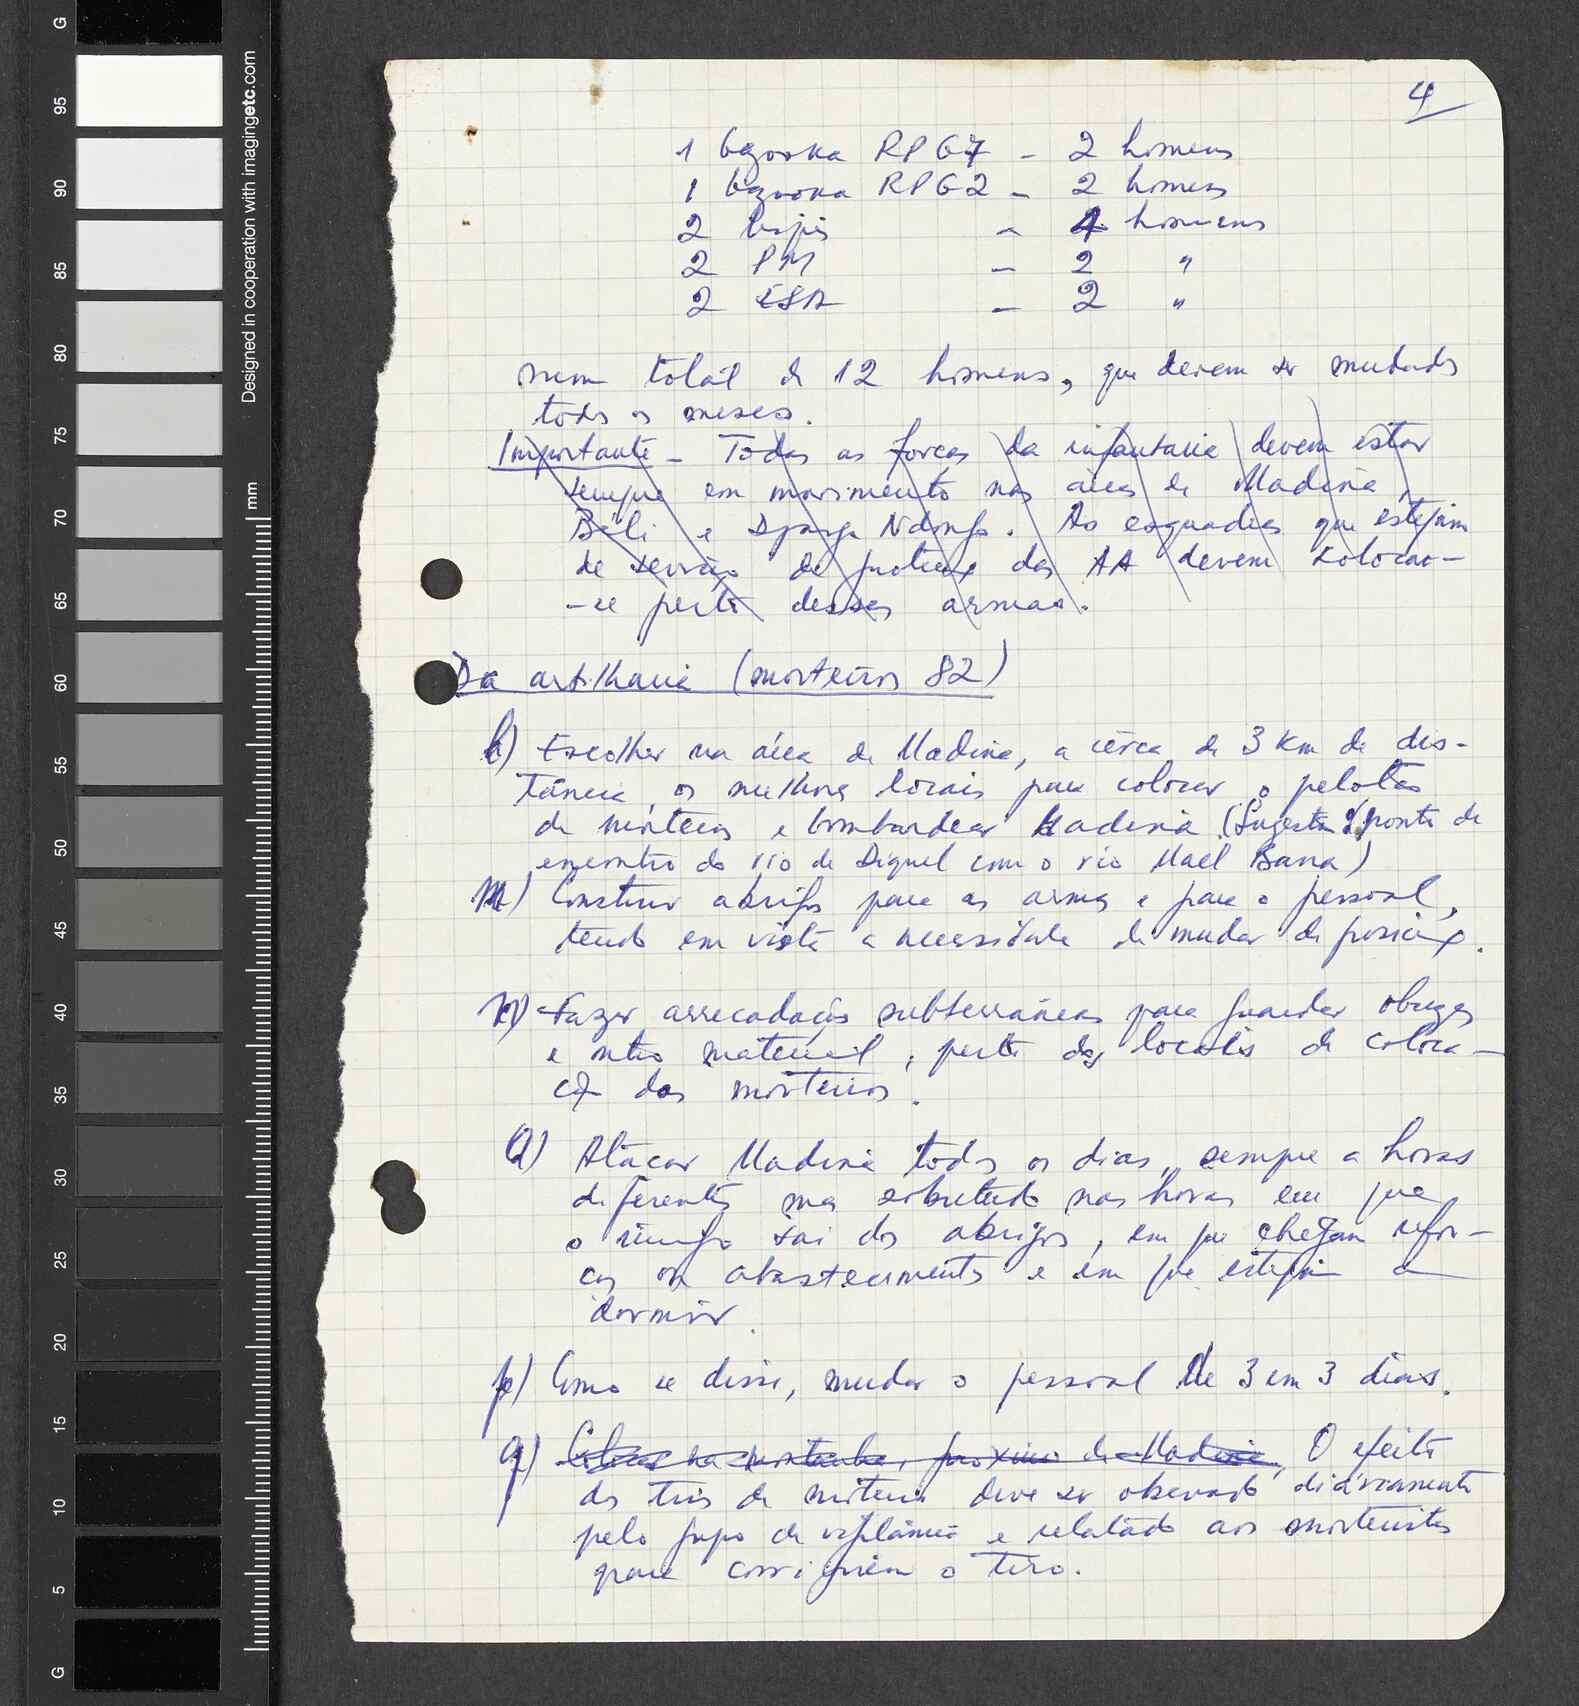 4
1 bazooka RPG7 - 2 homens
1 bazooka RPG2 - 2 homens
2 - 4 homens
2 PM - 2 "
2 - 2 "
num total de 12 homens, que devem ser mudados
todos os meses.
Importante - Todas as forças da infantaria devem estar
sempre em movimento nas áreas de Madina,
Béli e Djarga Ndongo. As esquadras que estejam
de serviço de protecção das AA devem colocar-
-se perto dessas armas.
Da artilharia (morteiros 82)
l) Escolher na área de Madina, a cêrca de 3 Km de dis-
tância, os melhores locais para colocar o pelotão
de morteiros e bombardear Madina (Sugestão: ponto de
encontro do rio de Diquel com o rio Mael Bana)
m) Construir abrigos para as armas e para o pessoal,
tendo em vista a necessidade de mudar de posição.
n) Fazer arrecadações subterrâneas para guardar obuzes
e outro material, perto dos locais de coloca-
ção dos morteiros.
o) Atacar Madina todos os dias, sempre a horas
diferentes mas sobretudo nas horas em que
o inimigo sai dos abrigos, em que chegam refor-
ços ou abastecimentos e em que estejam a
dormir.
p) Como se disse, mudar o pessoal de 3 em 3 dias.
q) Colocar na montanha, próximo de Madina, O efeito
dos tiros de morteiro deve ser observado diáriamente
pelo grupo de vigilância e relatado aos morteiristas
para corrigirem o tiro.
Designed in cooperation with imagingetc.com
mm
G
95
90
85
80
75
70
65
60
55
50
45
40
35
30
25
20
15
10
5
G